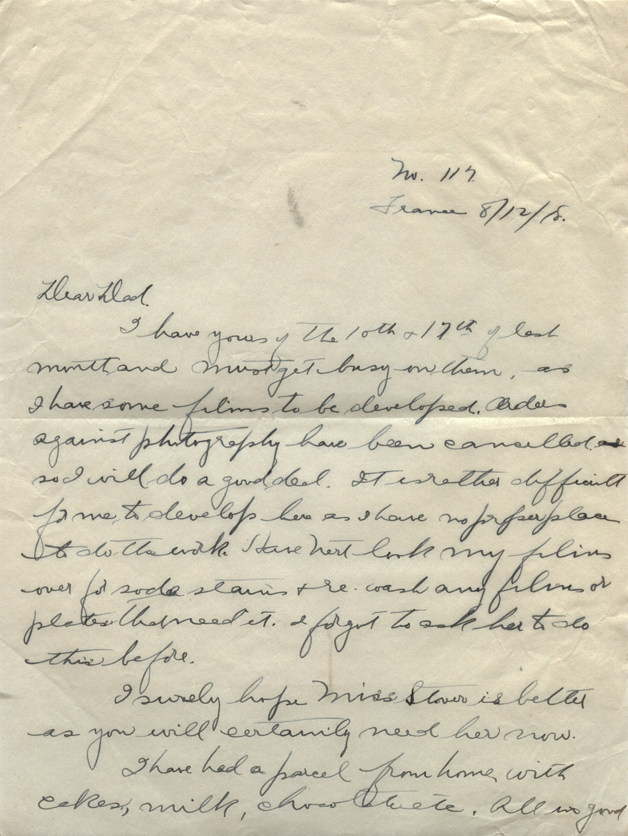 No. 117.
France 8/12/18.
Dear Dad.
I have yours of the 10th & 17th of last
month and must get busy on them, as
I have some films to be developed. Orders
against photography have been cancelled &
so I will do a good deal. It is rather difficult
for me to develop here as I have no proper place
to do the work. Have look my films
over for soda stains & re. wash any films or
plates that need it. I forgot to ask her to do
this before.
I surely hope Miss Stover is better
as you will certainly need her now.
I have had a parcel from home, with
cakes, milk, chocolate etc. All is good